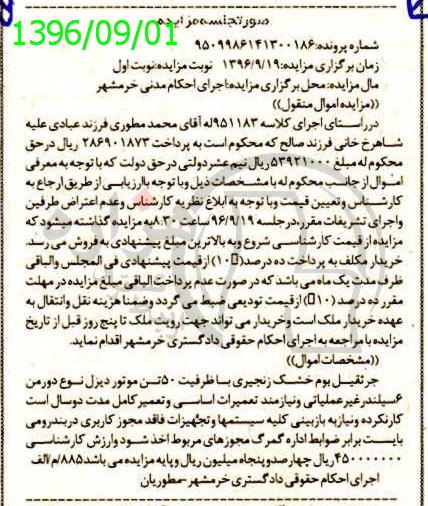 صورتجلسه مزایده
1396/09/01
شماره پرونده:۹۵۰۹۹۸۶۱۴۱۳۰۰۱۸۶
زمان برگزاری مزایده:۱۳۹۶/۹/۱۹ نوبت مزایده:نوبت اول
مال مزایده: محل برگزاری مزایده:اجرای احکام مدنی خرمشهر
((مزایده اموال منقول))
در راستای اجرای کلاسه ۹۵۱۱۸۳له آقای محمد مطوری فرزند عبادی علیه
شاهرخ خانی فرزند صالح که محکوم است به پرداخت ۲۸۶۹۰۱۸۷۳ ریال در حق
محکوم له مبلغ ۵۳۹۲۱۰۰۰ ریال نیم عشر دولتی در حق دولت که با توجه به معرفی
اموال از جانب محکوم له با مشخصات ذیل وبا توجه باارزیابی از طریق ارجاع به
کارشناس وتعیین قیمت وبا توجه به ابلاغ نظریه کارشناس وعدم اعتراض طرفین
واجرای تشریفات مقرر،در جلسه ۹۶/۹/۱۹ ساعت ۸:۳۰به مزایده گذاشته میشود که
مزایده از قیمت کارشناسی شروع وبه بالاترین مبلغ پیشنهادی به فروش می رسد.
خریدار مکلف به پرداخت ده درصد(۱۰) از قیمت پیشنهادی فی المجلس والباقی
ظرف مدت یک ماه می باشد که در صورت عدم پرداخت الباقی مبلغ مزایده در مهلت
مقرر ده درصد (۱۰) از قیمت تودیعی ضبط می گردد وضمنا هزینه نقل وانتقال به
عهده خریدار ملک است وخریدار می تواند جهت رویت ملک تا پنج روز قبل از تاریخ
مزایده با مراجعه به اجرای احکام حقوقی دادگستری خرمشهر اقدام نماید.
((مشخصات اموال))
جرثقیل بوم خشک زنجیری با ظرفیت ۵۰تن موتور دیزل نوع دورمن
۶سیلندر غیر عملیاتی ونیازمند تعمیرات اساسی وتعمیر کامل مدت دوسال است
کار نکرده ونیاز به بازبینی کلیه سیستمها وتجهیزات فاقد مجوز کاربری دربندر ومی
بایست برابر ضوابط اداره گمرگ مجوزهای مربوط اخذ شود وارزش کارشناسی
۴۵۰۰۰۰۰۰۰ریال چهارصدوپنجاه میلیون ریال وپایه مزایده می باشد ۸۸۵/م/الف
اجرای احکام حقوقی دادگستری خرمشهر-مطوریان